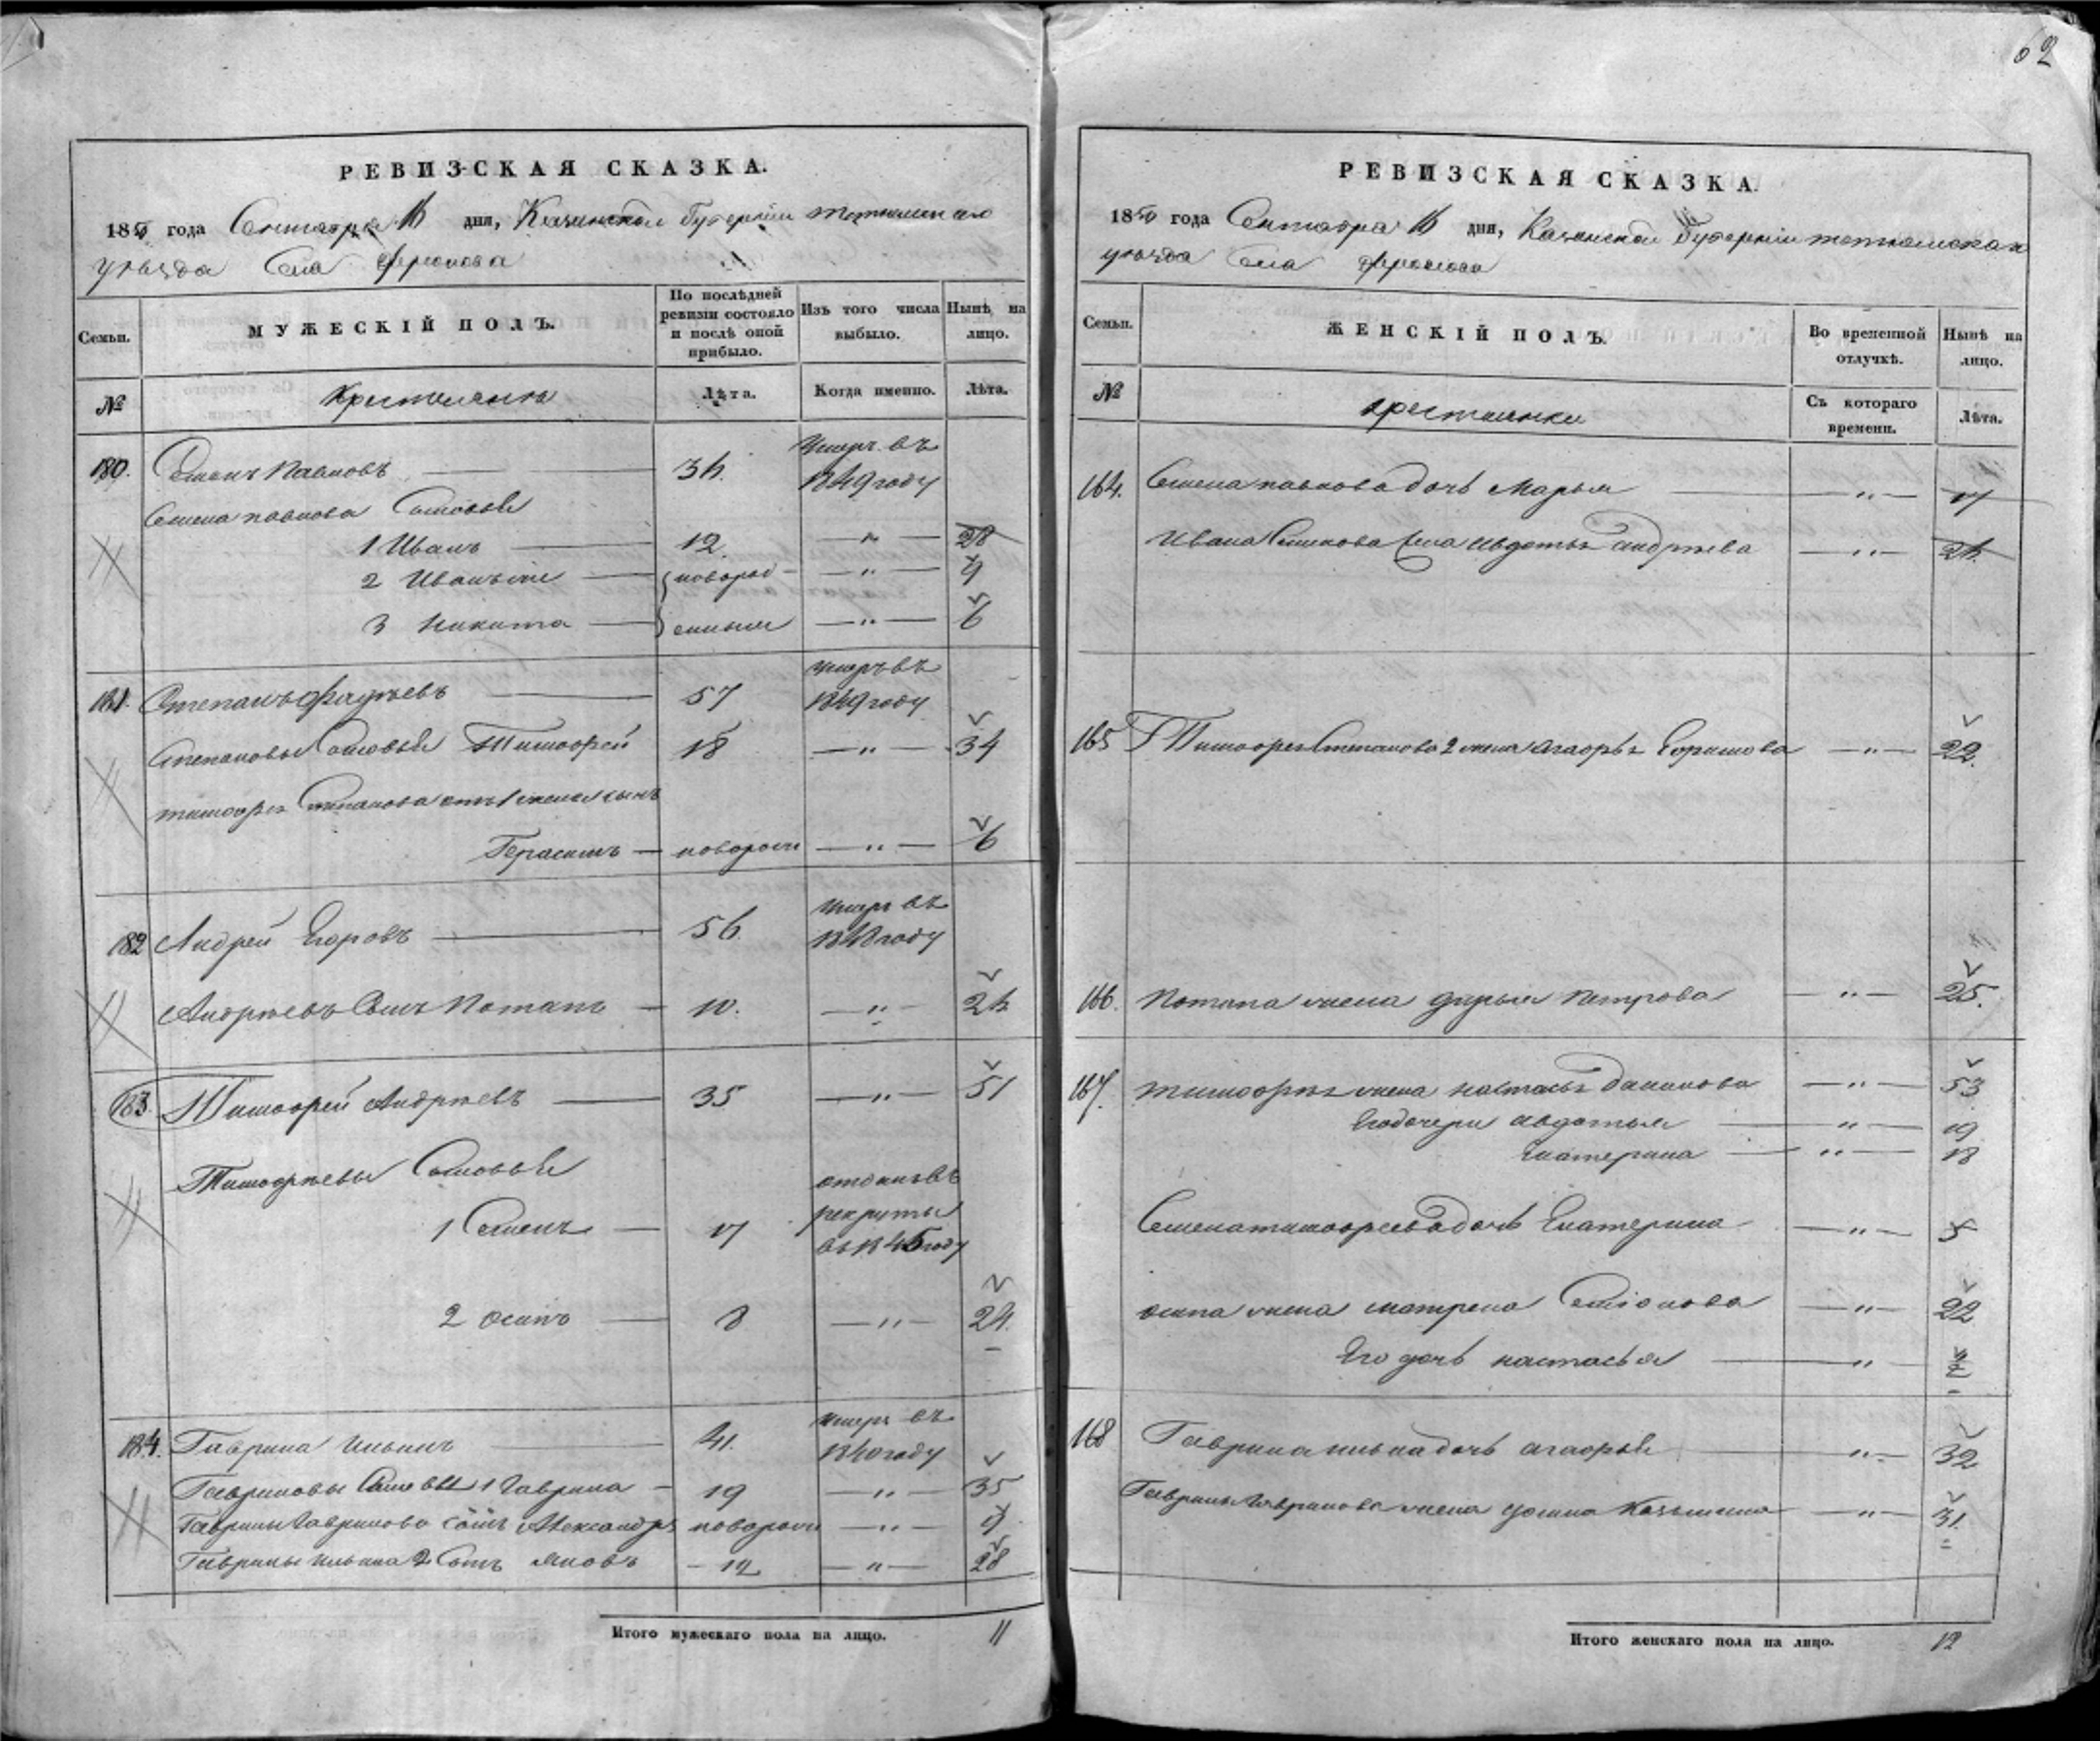 62
РЕВИЗСКАЯ СКАЗКА.
1850 года Сентября 16 дня, Казанской Губерніи Тетюшскаго
уѣзда Села
Семьи.
МУЖЕСКІЙ ПОЛЪ.
По послѣдней ревизіи состояло и послѣ оной прибыло.
Изъ того числа выбыло.
Нынѣ на лицо.
№
Крестьянъ
Лѣта.
Когда именно.
Лѣта.
180. Семенъ Павловъ — 34. умеръ въ 1849 году
Семена Павлова Сыновья
1 Иванъ — 12. — " — 28
2 Иванъ же — новорож- — " — 9
3 Никита — денные — " — 6
181. Степанъ Фадѣевъ — 57 умеръ въ 1849 году
Степановы Сыновья Тимофей 18 — " — 34
Тимофея Степанова отъ 1 жены сынъ
Герасимъ — новорож — " — 6
182 Андрей Егоровъ — 56. умеръ въ 1848 году
Андреевъ Сынъ Потапъ — 10. — " — 26
183. Тимофей Андреевъ — 35 — " — 51
Тимофеевы Сыновья
1 Семенъ — 17 отданъ въ рекруты въ 1845 году
2 Осипъ — 8 — " — 24.
184. Гаврила Ильинъ 41. умеръ въ 1840 году
Гавриловы Сыновья 1 Гаврила — 19 — " — 35
Гаврилы Гаврилова сынъ Александръ новорож — " — 9
Гаврилы Ильина 2 Сынъ Яковъ — 12 — " — 28
Итого мужескаго пола на лицо. 11
РЕВИЗСКАЯ СКАЗКА.
1850 года Сентября 16 дня, Казанской Губерніи Тетюшскаго
уѣзда Села
Семьи.
ЖЕНСКІЙ ПОЛЪ.
Во временной отлучкѣ.
Нынѣ на лицо.
№
Крестьянки
Съ котораго времени.
Лѣта.
164. Семена Павлова дочь Марья — " — 17
Ивана Семенова жена Авдотья Андреева — " — 26.
165 Тимофея Степанова 2 жена Агафья Ефимова — " — 22.
166. Потапа жена Дарья Петрова — " — 25.
167. Тимофея жена Настасья Данилова — " — 53
Его дочери Авдотья — " — 19
Катерина — " — 18
Семена Тимофеева дочь Катерина — " — 5
Осипа жена Матрена Семіонова — " — 22
Его дочь Настасья — " — 2
168 Гаврила Ильина дочь Агафья — " — 32
Гаврилы Гаврилова жена Козьмина — " — 31.
Итого женскаго пола на лицо. 12